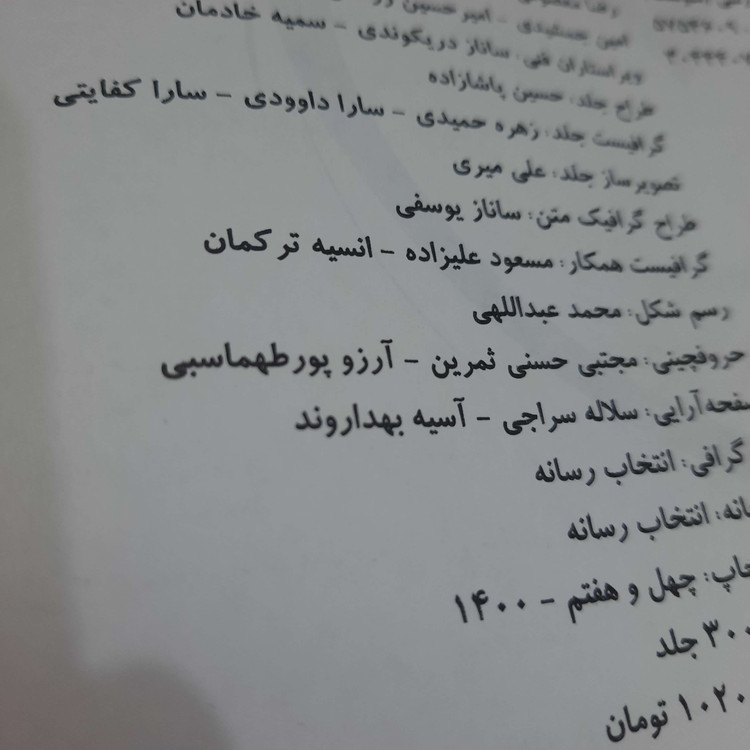 امیر حسین
ویراستاران فنی: ساناز دریکوندی - سمیه خادمان
طراح جلد: حسین پاشازاده
گرافیست جلد: زهره حمیدی - سارا داوودی - سارا کفایتی
تصویرساز جلد: علی میری
طراح گرافیک متن: ساناز یوسفی
گرافیست همکار: مسعود علیزاده - انسیه ترکمان
رسم شکل: محمد عبداللهی
حروفچینی: مجتبی حسنی ثمرین - آرزو پورطهماسبی
صفحه‌آرایی: سلاله سراجی - آسیه بهداروند
گرافی: انتخاب رسانه
انتخاب رسانه
چهل و هفتم - ۱۴۰۰
جلد
تومان